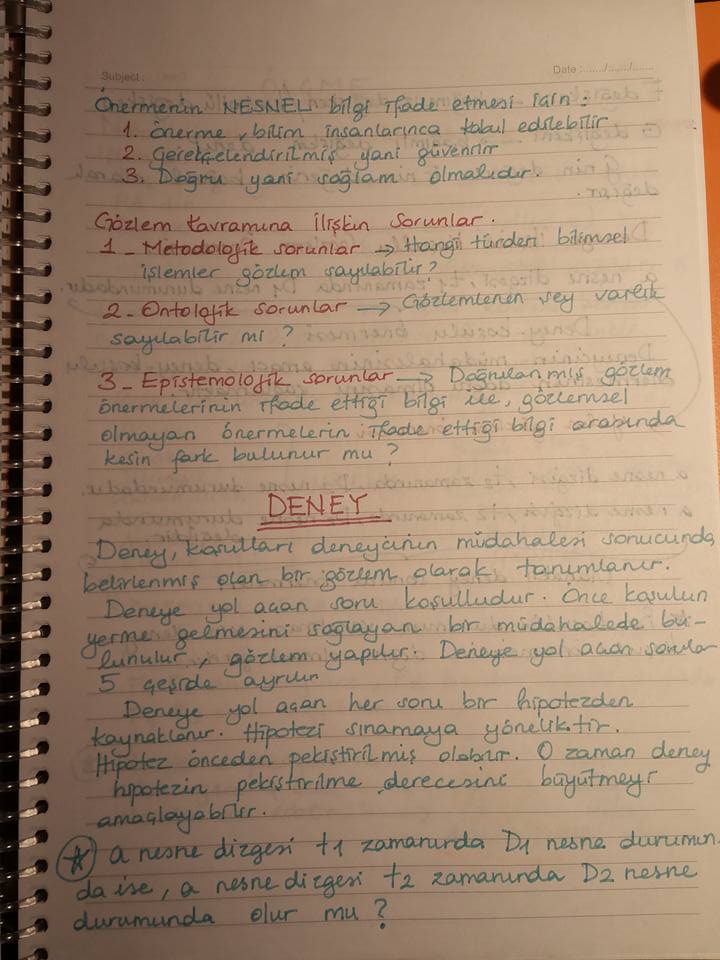 Subject :
Date : ....../....../......
Önermenin NESNEL bilgi ifade etmesi için :
1. Önerme, bilim insanlarınca kabul edilebilir
2. Gerekçelendirilmiş yani güvenilir
3. Doğru yani sağlam olmalıdır.
Gözlem kavramına ilişkin sorunlar.
1 - Metodolojik sorunlar → Hangi türden bilimsel
işlemler gözlem sayılabilir?
2 - Ontolojik sorunlar → Gözlemlenen şey varlık
sayılabilir mi ?
3 - Epistemolojik sorunlar → Doğrulanmış gözlem
önermelerinin ifade ettiği bilgi ile, gözlemsel
olmayan önermelerin ifade ettiği bilgi arasında
kesin fark bulunur mu ?
DENEY
Deney, koşulları deneycinin müdahalesi sonucunda
belirlenmiş olan bir gözlem olarak tanımlanır.
Deneye yol açan soru koşulludur. Önce koşulun
yerine gelmesini sağlayan bir müdahalede bu-
lunulur, gözlem yapılır. Deneye yol açan sorular
5 çeşide ayrılır
Deneye yol açan her soru bir hipotezden
kaynaklanır. Hipotezi sınamaya yöneliktir.
Hipotez önceden pekiştirilmiş olabilir. O zaman deney
hipotezin pekiştirilme derecesini büyütmeyi
amaçlayabilir.
* a nesne dizgesi t1 zamanında D1 nesne durumun
da ise, a nesne dizgesi t2 zamanında D2 nesne
durumunda olur mu ?